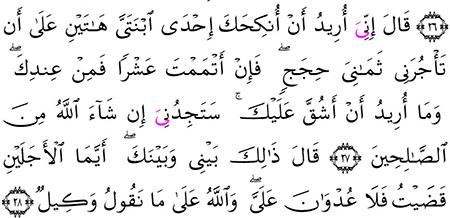 ﴿٢٦﴾ قَالَ إِنِّىَ أُرِيدُ أَنْ أُنكِحَكَ إِحْدَى ٱبْنَتَىَّ هَـٰتَيْنِ عَلَىٰٓ أَن
تَأْجُرَنِى ثَمَـٰنِىَ حِجَجٍ ۖ فَإِنْ أَتْمَمْتَ عَشْرًا فَمِنْ عِندِكَ ۖ
وَمَآ أُرِيدُ أَنْ أَشُقَّ عَلَيْكَ ۚ سَتَجِدُنِىَ إِن شَآءَ ٱللَّهُ مِنَ
ٱلصَّـٰلِحِينَ ﴿٢٧﴾ قَالَ ذَٰلِكَ بَيْنِى وَبَيْنَكَ ۖ أَيَّمَا ٱلْأَجَلَيْنِ
قَضَيْتُ فَلَا عُدْوَٰنَ عَلَىَّ ۖ وَٱللَّهُ عَلَىٰ مَا نَقُولُ وَكِيلٌ ﴿٢٨﴾